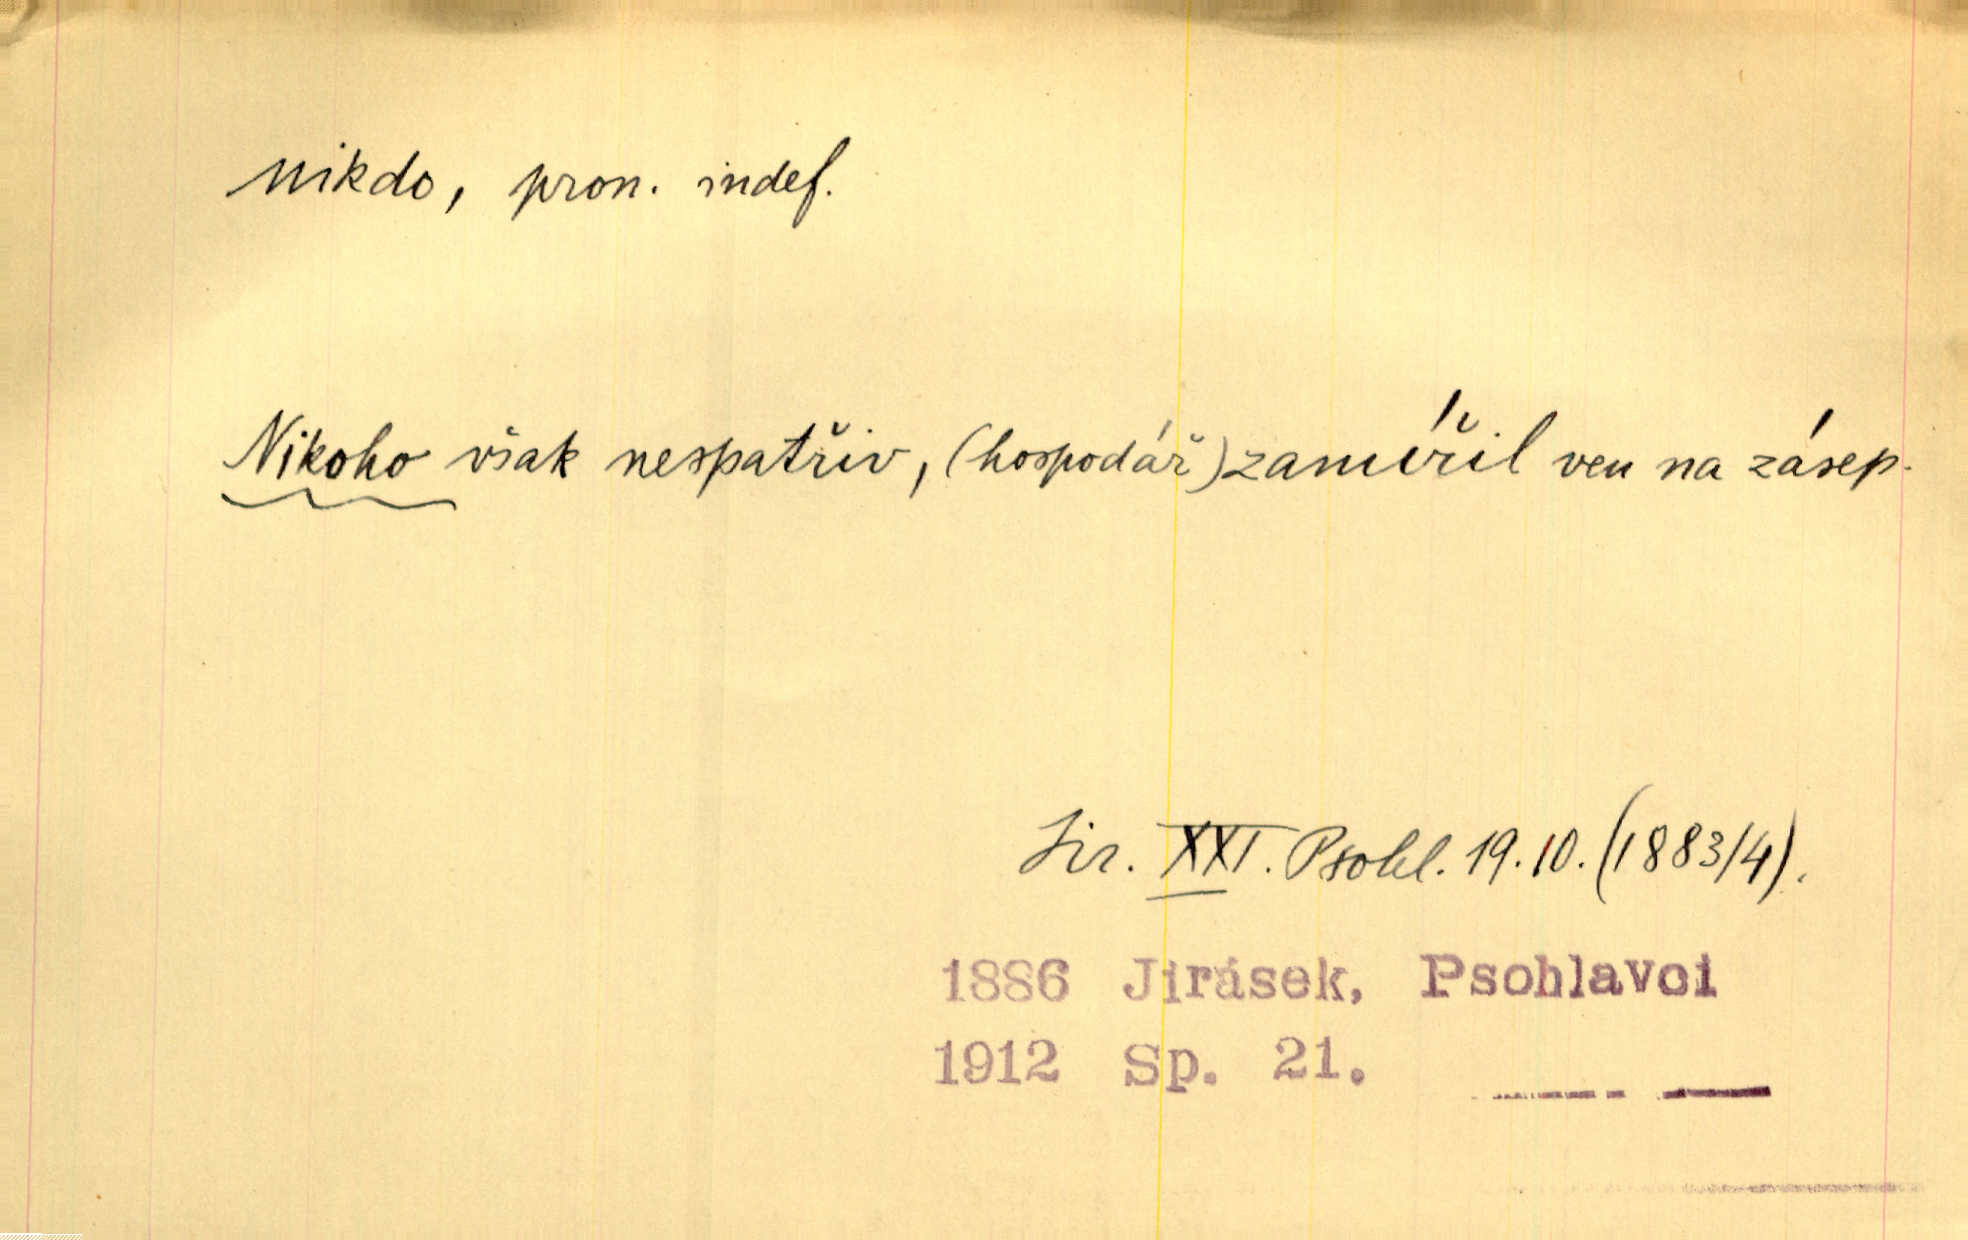 nikdo, pron. indef.
Nikoho však nespatřiv, (hospodář) zaměřil ven na zásep.
Jir. XXI. Psohl. 19.10. (1883/4).
1886 Jirásek, Psohlavci
1912 Sp. 21.